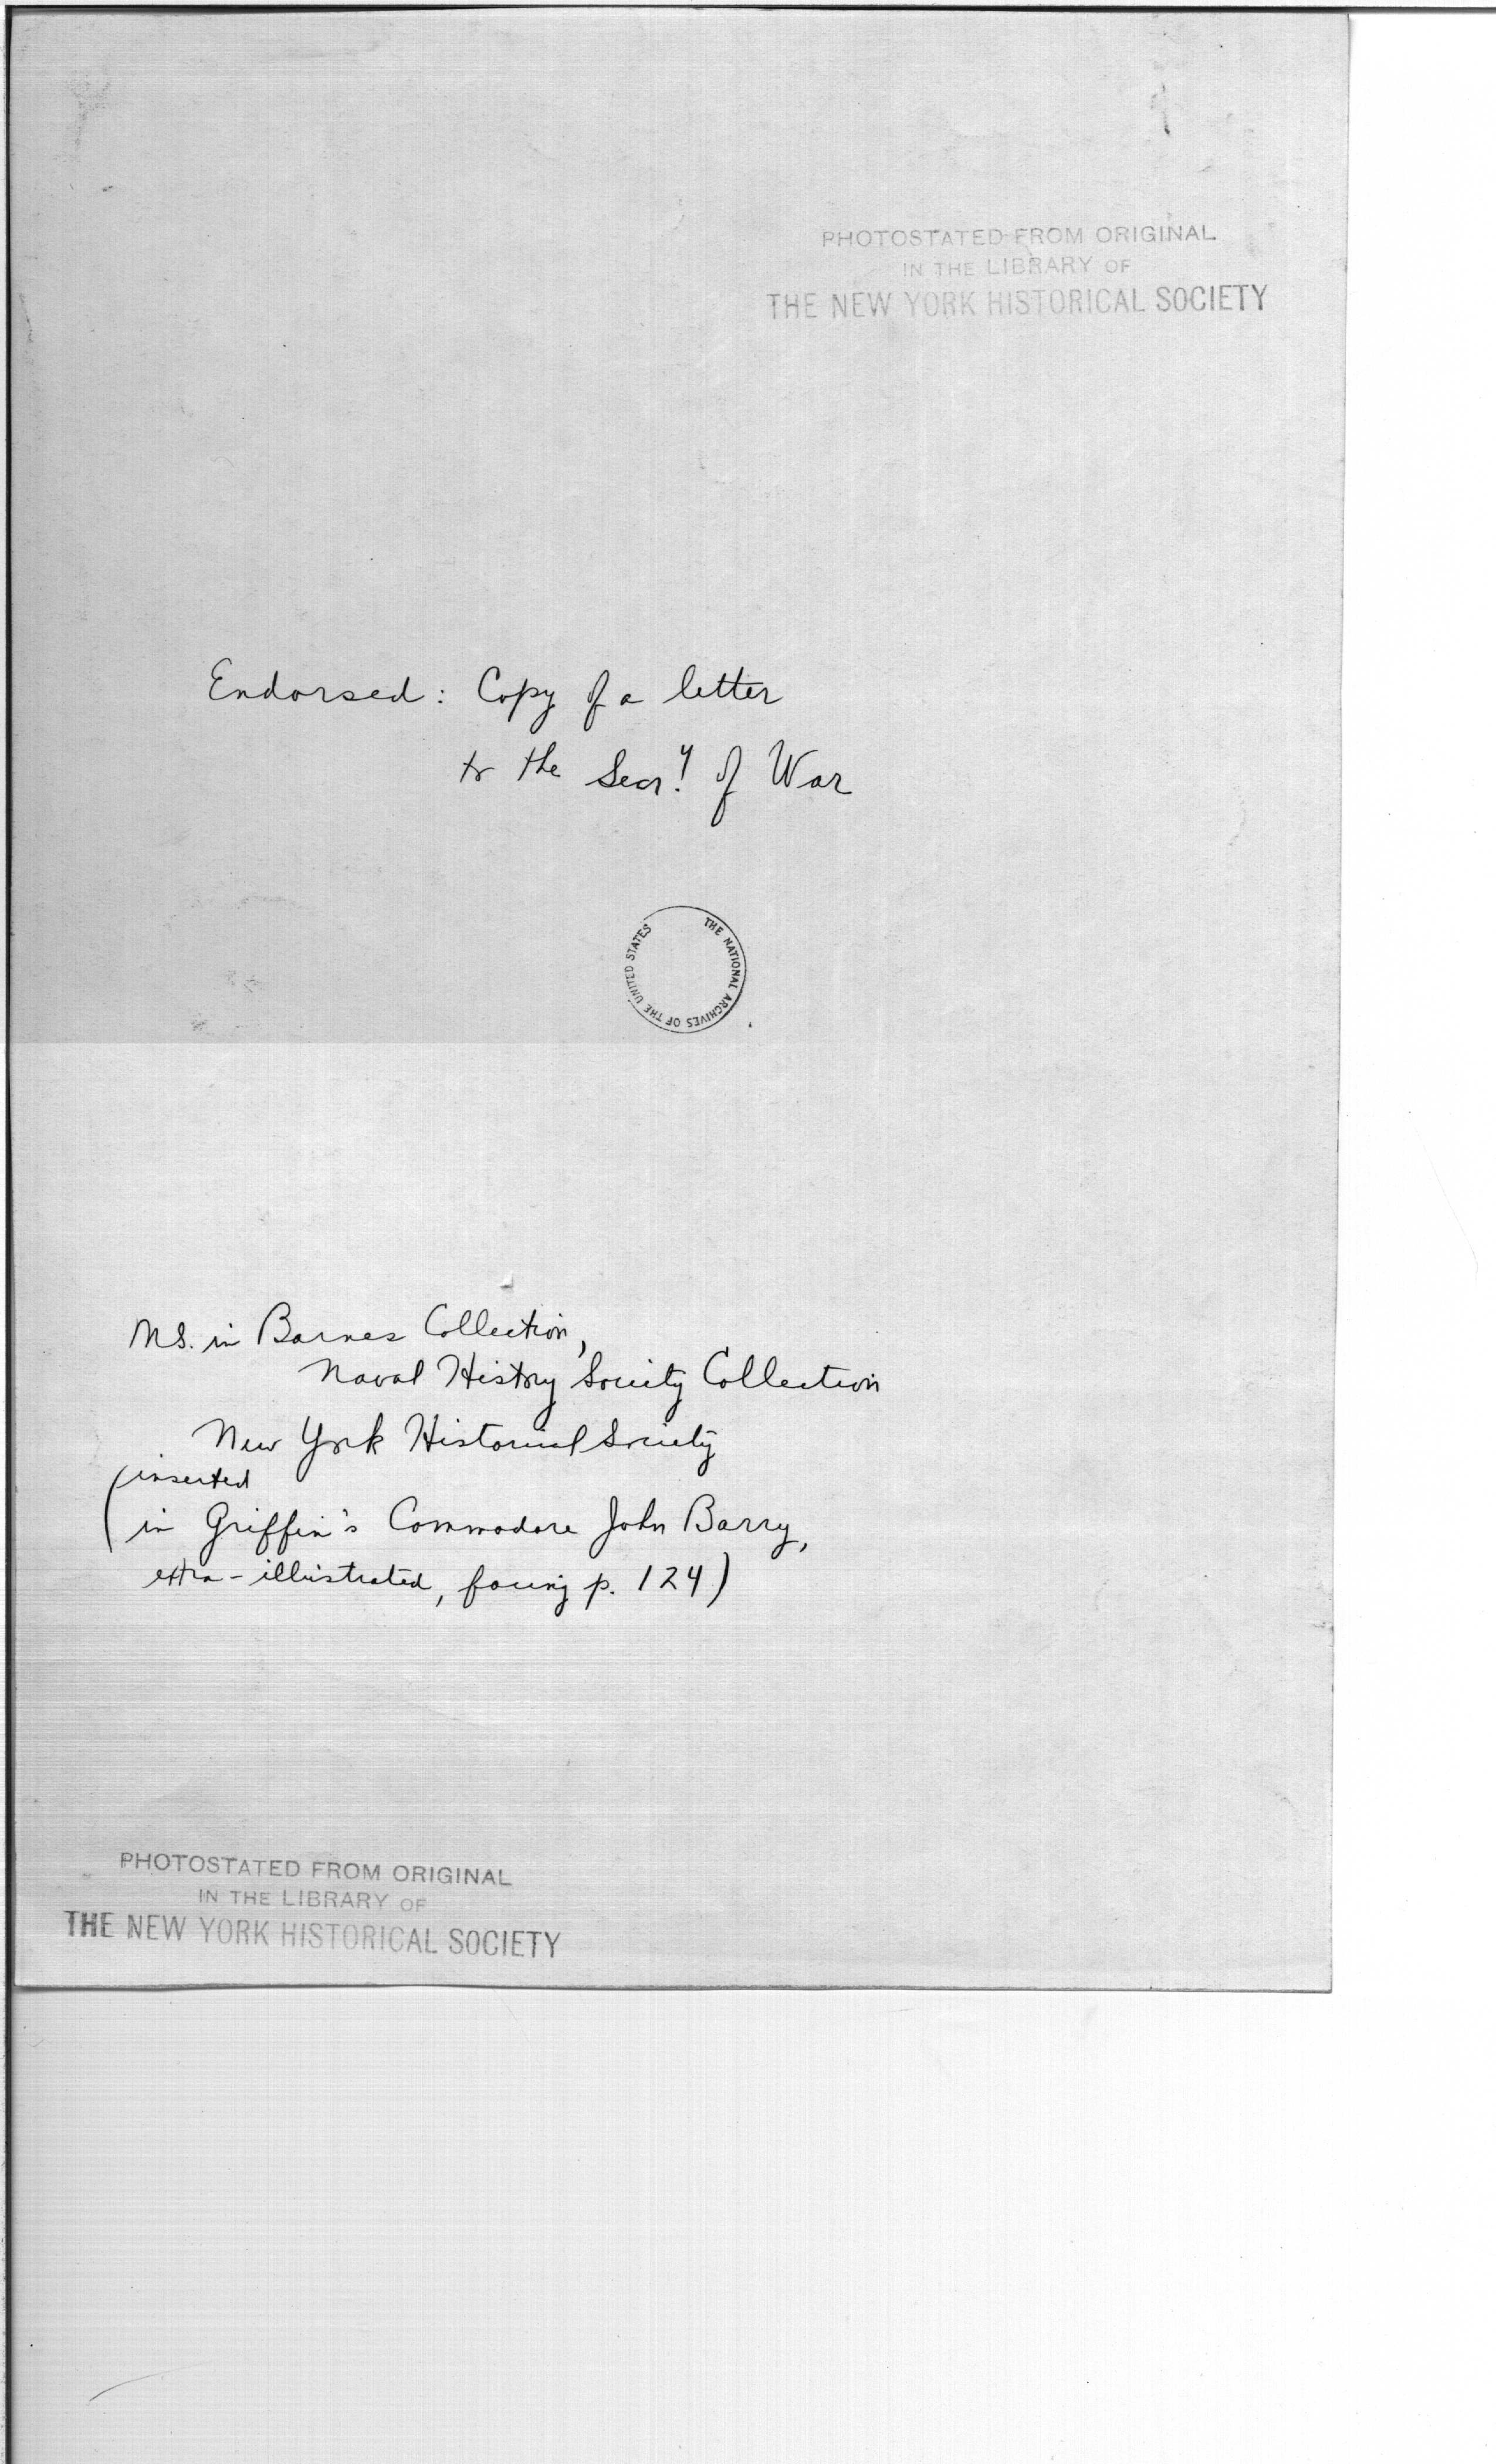 PHOTOSTATED FROM ORIGINAL
IN THE LIBRARY OF
THE NEW YORK HISTORICAL SOCIETY
Endorsed: Copy of a letter
to the Secr.y of War
THE NATIONAL ARCHIVES OF THE UNITED STATES
MS. in Barnes Collection,
Naval History Society Collection
New York Historical Society
(inserted
in Griffin's Commodore John Barry,
extra-illustrated, facing p. 124)
PHOTOSTATED FROM ORIGINAL
IN THE LIBRARY OF
THE NEW YORK HISTORICAL SOCIETY